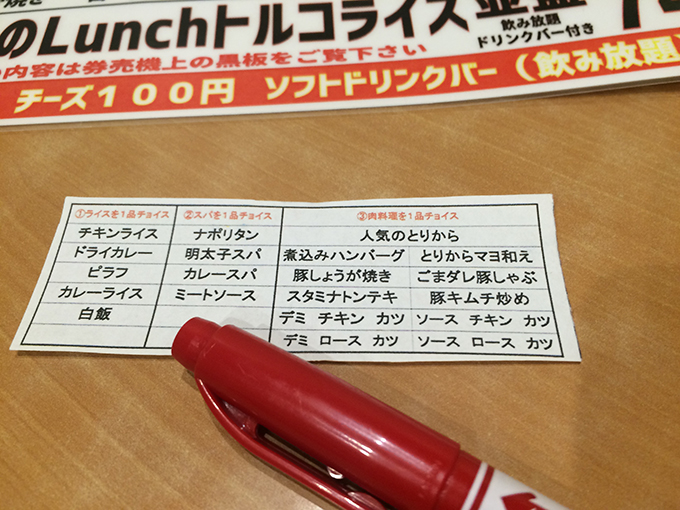 のLunchトルコライス
飲み放題
ドリンクバー付き
内容は券売機上の黒板をご覧下さい
チーズ100円 ソフトドリンクバー(飲み放題)
①ライスを1品チョイス ②スパを1品チョイス ③肉料理を1品チョイス
チキンライス ナポリタン 人気のとりから
ドライカレー 明太子スパ 煮込みハンバーグ とりからマヨ和え
ピラフ カレースパ 豚しょうが焼き ごまダレ豚しゃぶ
カレーライス ミートソース スタミナトンテキ 豚キムチ炒め
白飯 デミ チキン カツ ソース チキン カツ
デミ ロース カツ ソース ロース カツ